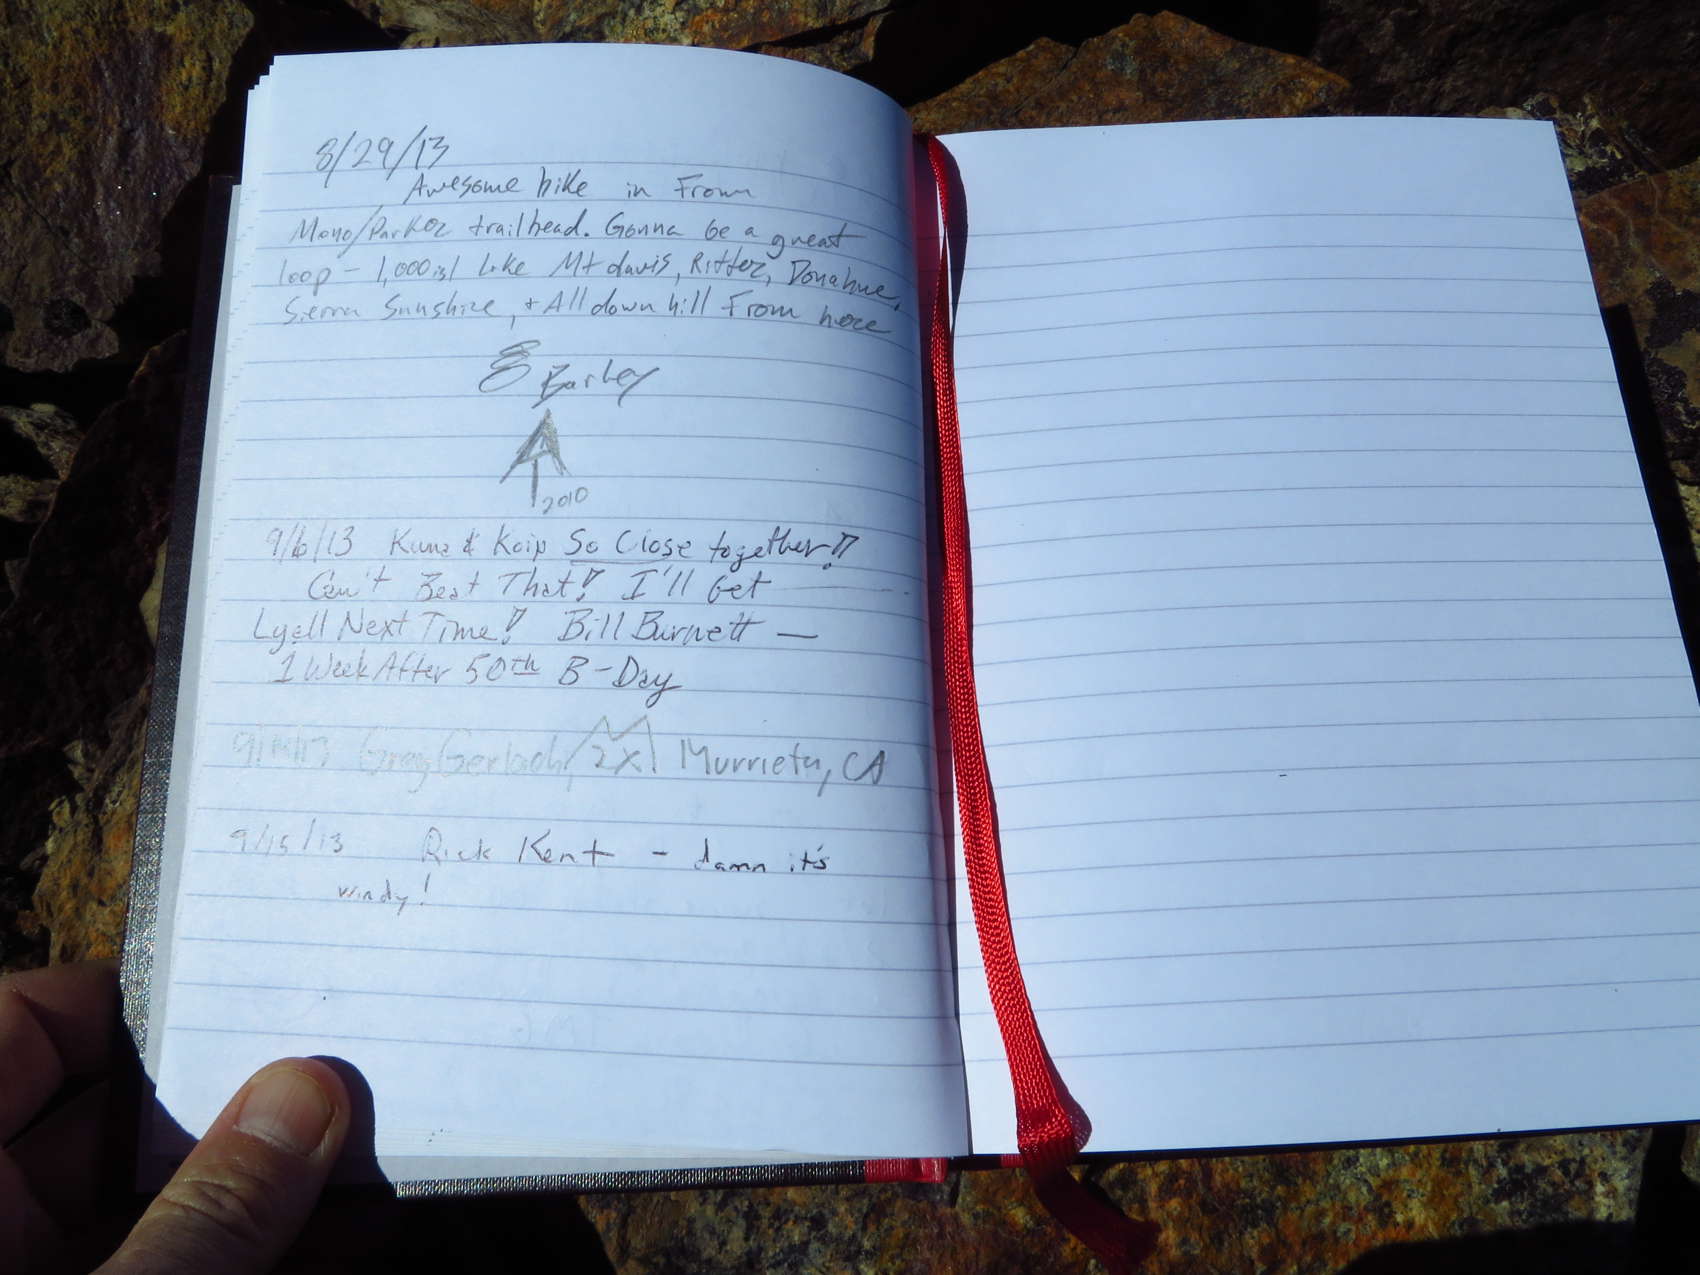 8/29/13
Awesome hike in From
Mono/Parker trailhead. Gonna be a great
loop - 1,000 is! Like Mt davis, Ritter, Donahue,
Sierra Sunshine, + All down hill From here
Barley
2010
9/6/13 Kuna & Koip So Close together!!
Can't Beat That! I'll Get
Lyell Next Time! Bill Burnett —
1 Week After 50th B-Day
Greg Gerlach, 2X Murrieta, CA
9/15/13 Rick Kent - damn it's
windy!